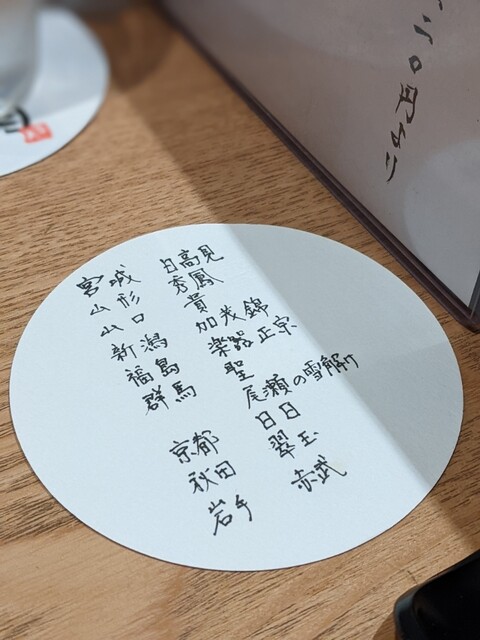 宮城 日高見
山形 秀鳳
山口 貴
新潟 加茂錦
福島 楽器正宗
群馬 聖
尾瀬の雪解け
京都 日日
秋田 翠玉
岩手 赤武
〇円より